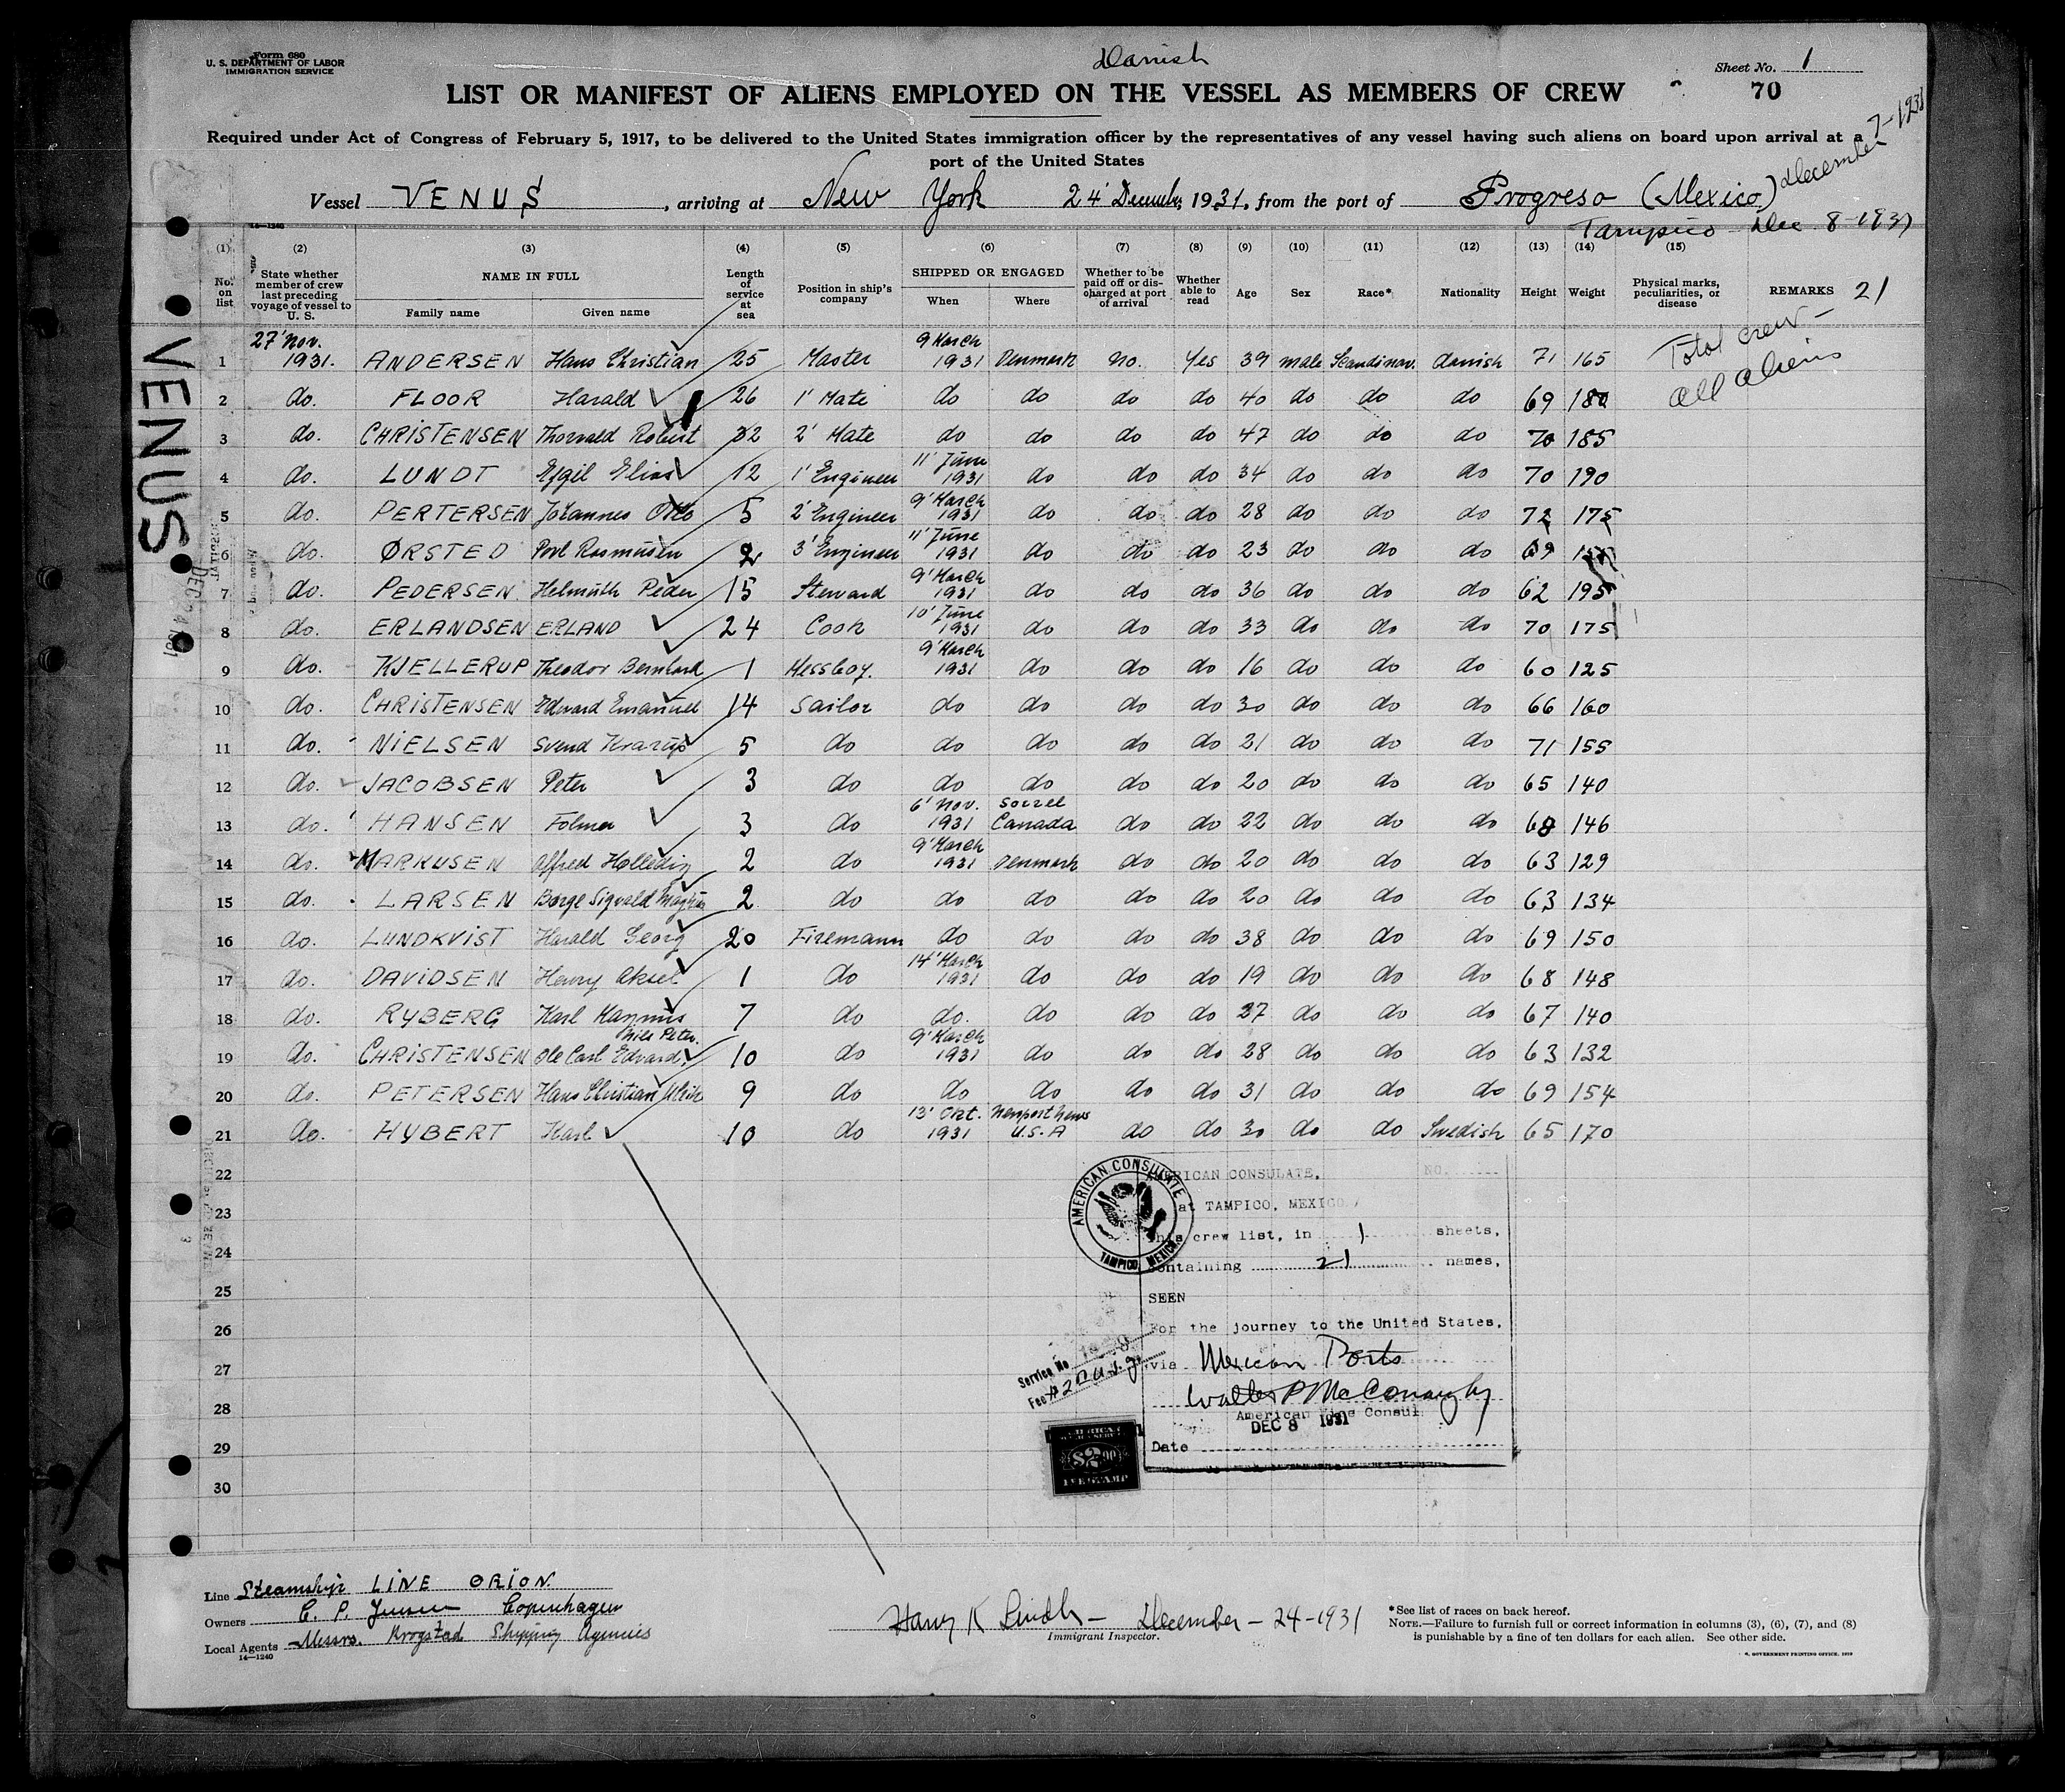 Form 680
U. S. DEPARTMENT OF LABOR
IMMIGRATION SERVICE
Danish
Sheet No. 1
LIST OR MANIFEST OF ALIENS EMPLOYED ON THE VESSEL AS MEMBERS OF CREW
70
Required under Act of Congress of February 5, 1917, to be delivered to the United States immigration officer by the representatives of any vessel having such aliens on board upon arrival at a
port of the United States
December 7-1931
Vessel VENUS, arriving at New York 24' December, 1931, from the port of Progreso (Mexico)
Tampico Dec. 8-1931
14-1240
(1) (2) (3) (4) (5) (6) (7) (8) (9) (10) (11) (12) (13) (14) (15)
No. on list
State whether member of crew last preceding voyage of vessel to U. S.
NAME IN FULL
Family name Given name
Length of service at sea
Position in ship's company
SHIPPED OR ENGAGED
When Where
Whether to be paid off or discharged at port of arrival
Whether able to read
Age
Sex
Race*
Nationality
Height
Weight
Physical marks, peculiarities, or disease
REMARKS
21
Total crew -
all aliens
VENUS
DEC 24 1931
1 27' Nov. 1931. ANDERSEN Hans Christian 25 Master 9 March 1931 Denmark no. Yes 39 male Scandinav. danish 71 165
2 do. FLOOR Harald 26 1' Mate do do do do 40 do do do 69 180
3 do. CHRISTENSEN Thorvald Robert 32 2' Mate do do do do 47 do do do 70 185
4 do. LUNDT Ejgil Elias 12 1' Engineer 11' June 1931 do do do 34 do do do 70 190
5 do. PERTERSEN Johannes Otto 5 2' Engineer 9' March 1931 do do do 28 do do do 72 175
6 do. ØRSTED Povl Rasmusen 2 3' Engineer 11' June 1931 do do do 23 do do do 69
7 do. PEDERSEN Helmuth Peder 15 Steward 9' March 1931 do do do 36 do do do 62 195
8 do. ERLANDSEN ERLAND 24 Cook 10' June 1931 do do do 33 do do do 70 175
9 do. KJELLERUP Theodor Bernhard 1 Messboy. 9' March 1931 do do do 16 do do do 60 125
10 do. CHRISTENSEN Edward Emanuel 14 Sailor do do do do 30 do do do 66 160
11 do. NIELSEN Svend Krarup 5 do do do do do 21 do do do 71 155
12 do. JACOBSEN Peter 3 do do do do do 20 do do do 65 140
13 do. HANSEN Folmer 3 do 6' Nov. 1931 Sorrel Canada do do 22 do do do 68 146
14 do. MARKUSEN Alfred 2 do 9' March 1931 Denmark do do 20 do do do 63 129
15 do. LARSEN Børge Sigvald Magnus 2 do do do do do 20 do do do 63 134
16 do. LUNDKVIST Harald Georg 20 Firemann do do do do 38 do do do 69 150
17 do. DAVIDSEN Henry Aksel 1 do 14' March 1931 do do do 19 do do do 68 148
18 do. RYBERG Karl Magnus 7 do do. do do do 27 do do do 67 140
19 do. CHRISTENSEN Ole Carl Edvard Nils Peter. 10 do 9' March 1931 do do do 28 do do do 63 132
20 do. PETERSEN Hans Christian Ulrik 9 do do do do do 31 do do do 69 154
21 do. HYBERT Karl 10 do 13' Okt. 1931 Newport News U.S.A do do 30 do do Swedish 65 170
22
23
24
25
26
27
28
29
30
AMERICAN CONSULATE
TAMPICO, MEXICO.
AMERICAN CONSULATE, NO.
at TAMPICO, MEXICO,
This crew list, in 1 sheets,
containing 21 names,
SEEN
For the journey to the United States,
via Mexican Ports
Walter P McConaughy
American Vice Consul
DEC 8 1931
Date
Service No.
Fee
$2.00
FEE STAMP
Line Steamship LINE ORION.
Owners C. P. Jensen Copenhagen
Local Agents Messrs. Krogstad Shipping Agencies
14-1240
Harry K Lindh - December - 24-1931
Immigrant Inspector.
*See list of races on back hereof.
NOTE.—Failure to furnish full or correct information in columns (3), (6), (7), and (8)
is punishable by a fine of ten dollars for each alien. See other side.
U. S. GOVERNMENT PRINTING OFFICE